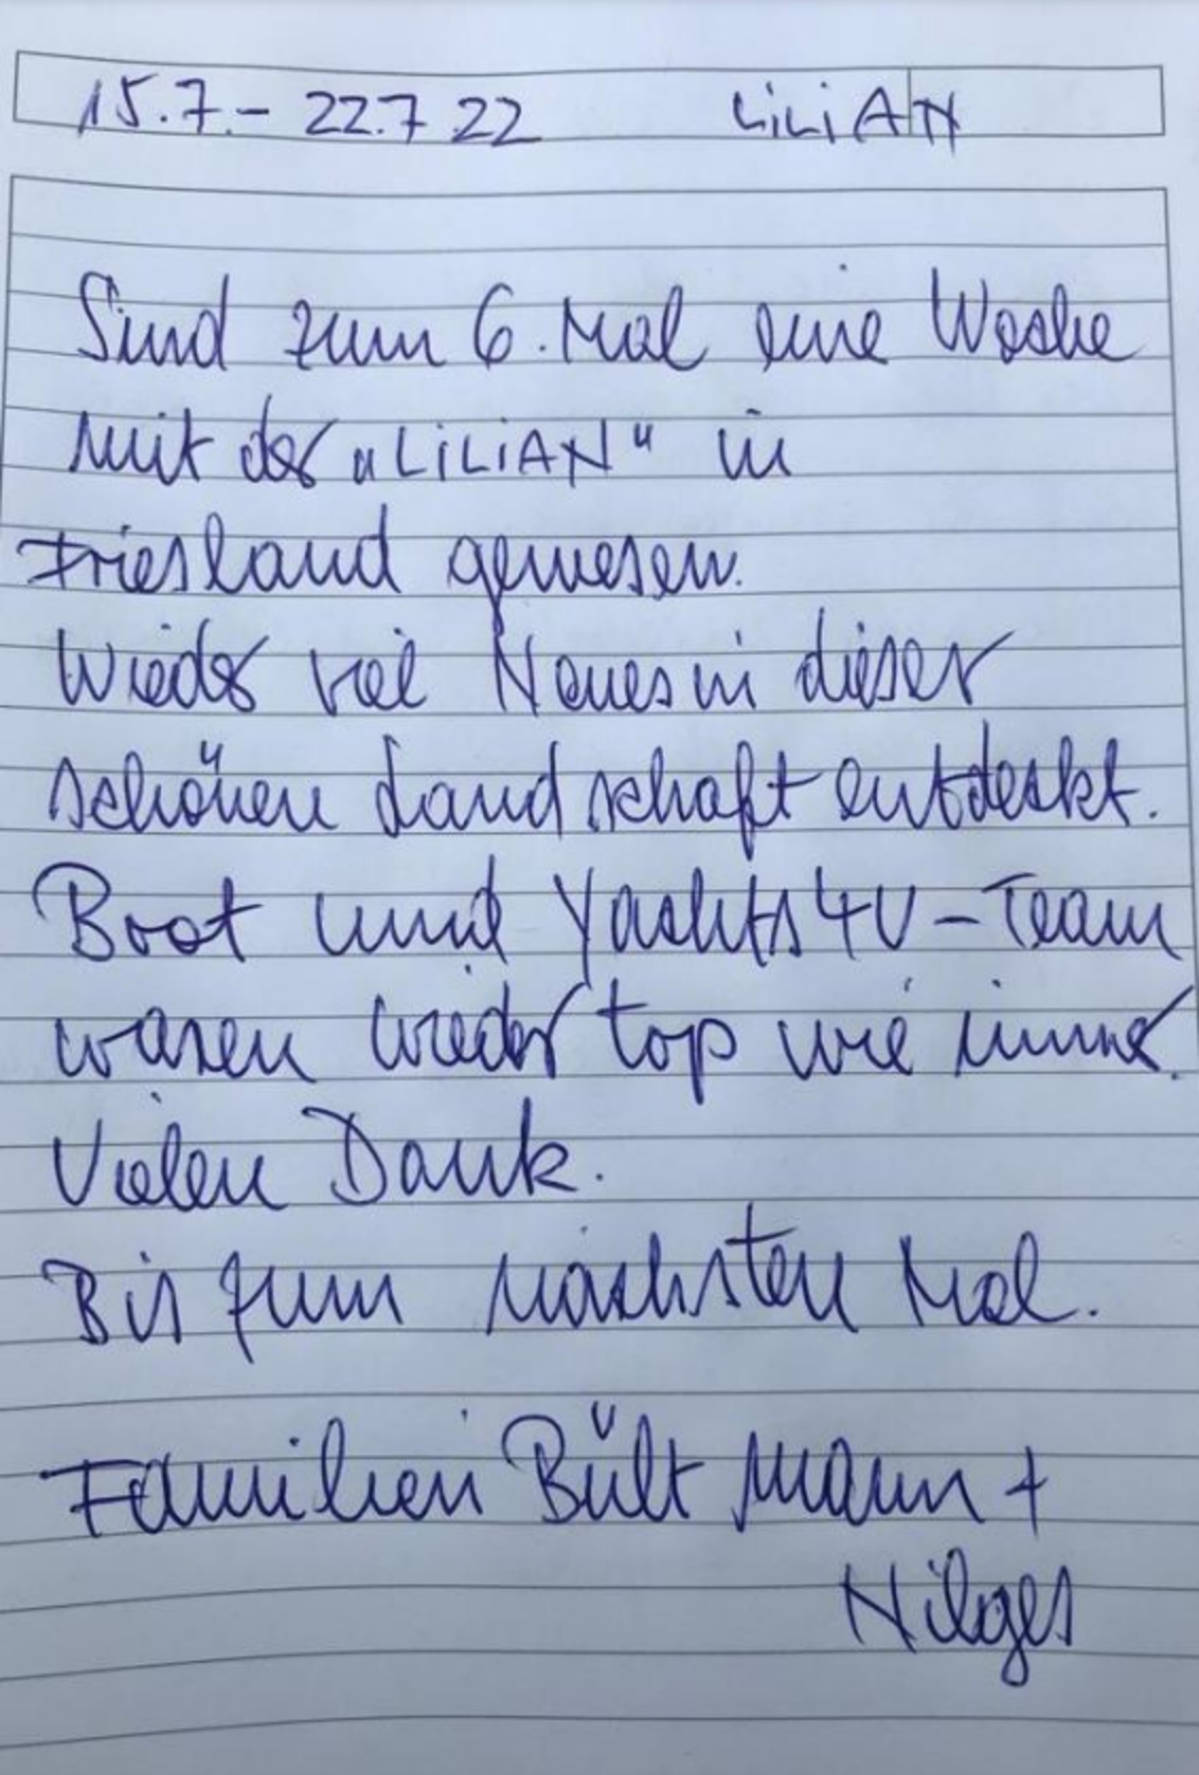 15.7.- 22.7.22 LiLiAN
Sind zum 6. Mal eine Woche
mit der „LiLiAN“ in
Friesland gewesen.
Wieder viel Neues in dieser
schönen Landschaft entdeckt.
Boot und Yachts4U-Team
waren wieder top wie immer.
Vielen Dank.
Bis zum nächsten Mal.
Familien Bültmann +
Hilges